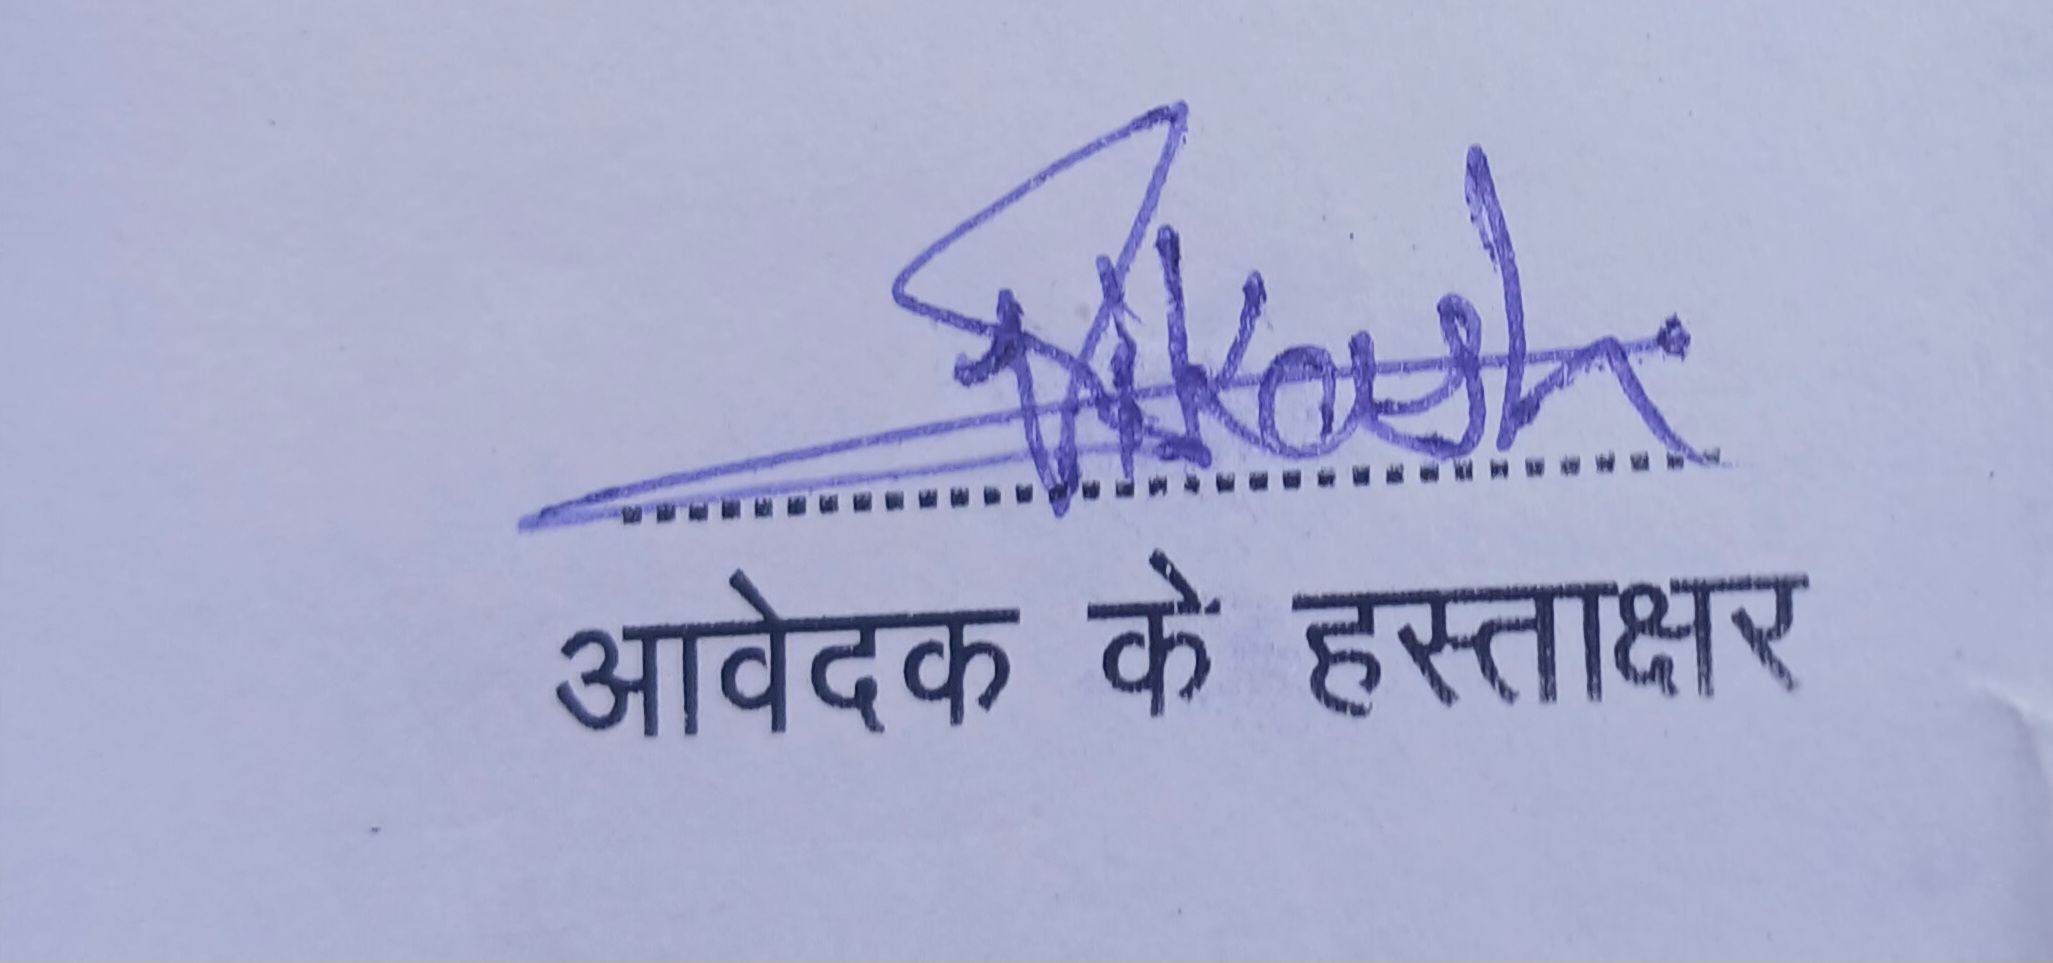 Vikash
आवेदक के हस्ताक्षर